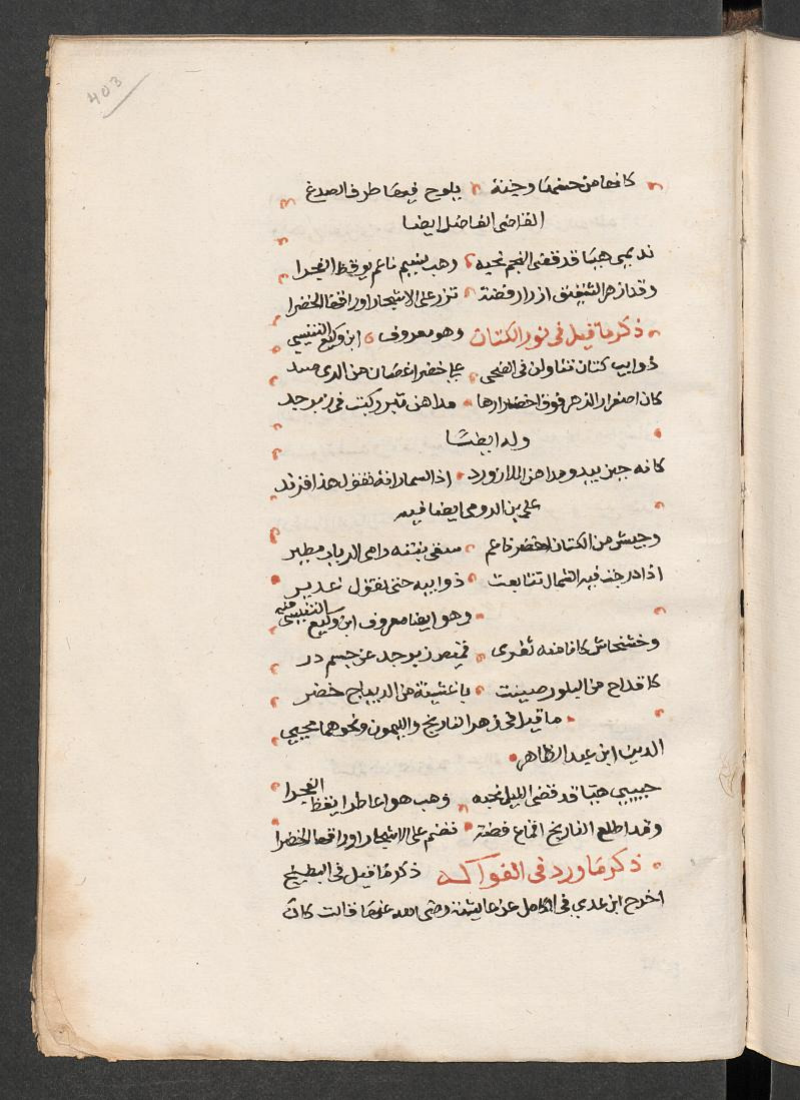 403
كانها من حسنها وجنة يلوح فيها طرف الصدغ
القاضى الفاضل ايضا
نديمى هيا قد قضى النجم نحبه وهب نسيم ناعم يوقظ الفجرا
وقد ازهر النارنج ازرار فضة تزر على الاشجار اوراقها الخضرا
ذكر ما قيل فى نور الكتان وهو معروف ابن وكيع التنيسى
ذوايب كتان تمايلن فى الضحى على خضر اغصان من الرى ميد
كان اصفرار الزهر فوق اخضرارها مداهن تبر ركبت فى زبرجد
وله ايضا
كانه حين يبدو مداهن اللازورد اذا السما راته تقول هذا فرند
على بن الرومى ايضا فيه
وجيش من الكتان اخضر ناعم سقى نبته داهى الرباب مطير
اذا درجت فيه الشمال تتابعت ذوايبه حتى تقول غدير
وهو ايضا معروف ابن وكيع التنيسى فيه
وخشخاش كانا منه نفرى قميص زبرجد عن جسم در
كاقداح من البلور صينت باغشية من الديباج خضر
ما قيل فى زهر النارنج والليمون ونحوهما محيى
الدين ابن عبد الظاهر
حبيبى هيا قد قضى الليل نحبه وهب هوا عاطر ايقظ الفجرا
وقد اطلع النارنج اقماع فضة تضم على الاشجار اوراقها الخضرا
ذكر ما ورد فى الفواكه ذكر ما قيل فى البطيخ
اخرج ابن عدى فى الكامل عن عايشة رضى الله عنها قالت كان